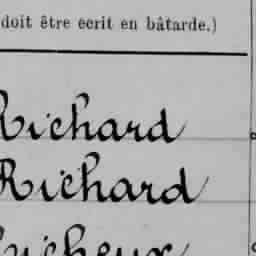 doit être ecrit en bâtarde.)
Richard
Richard